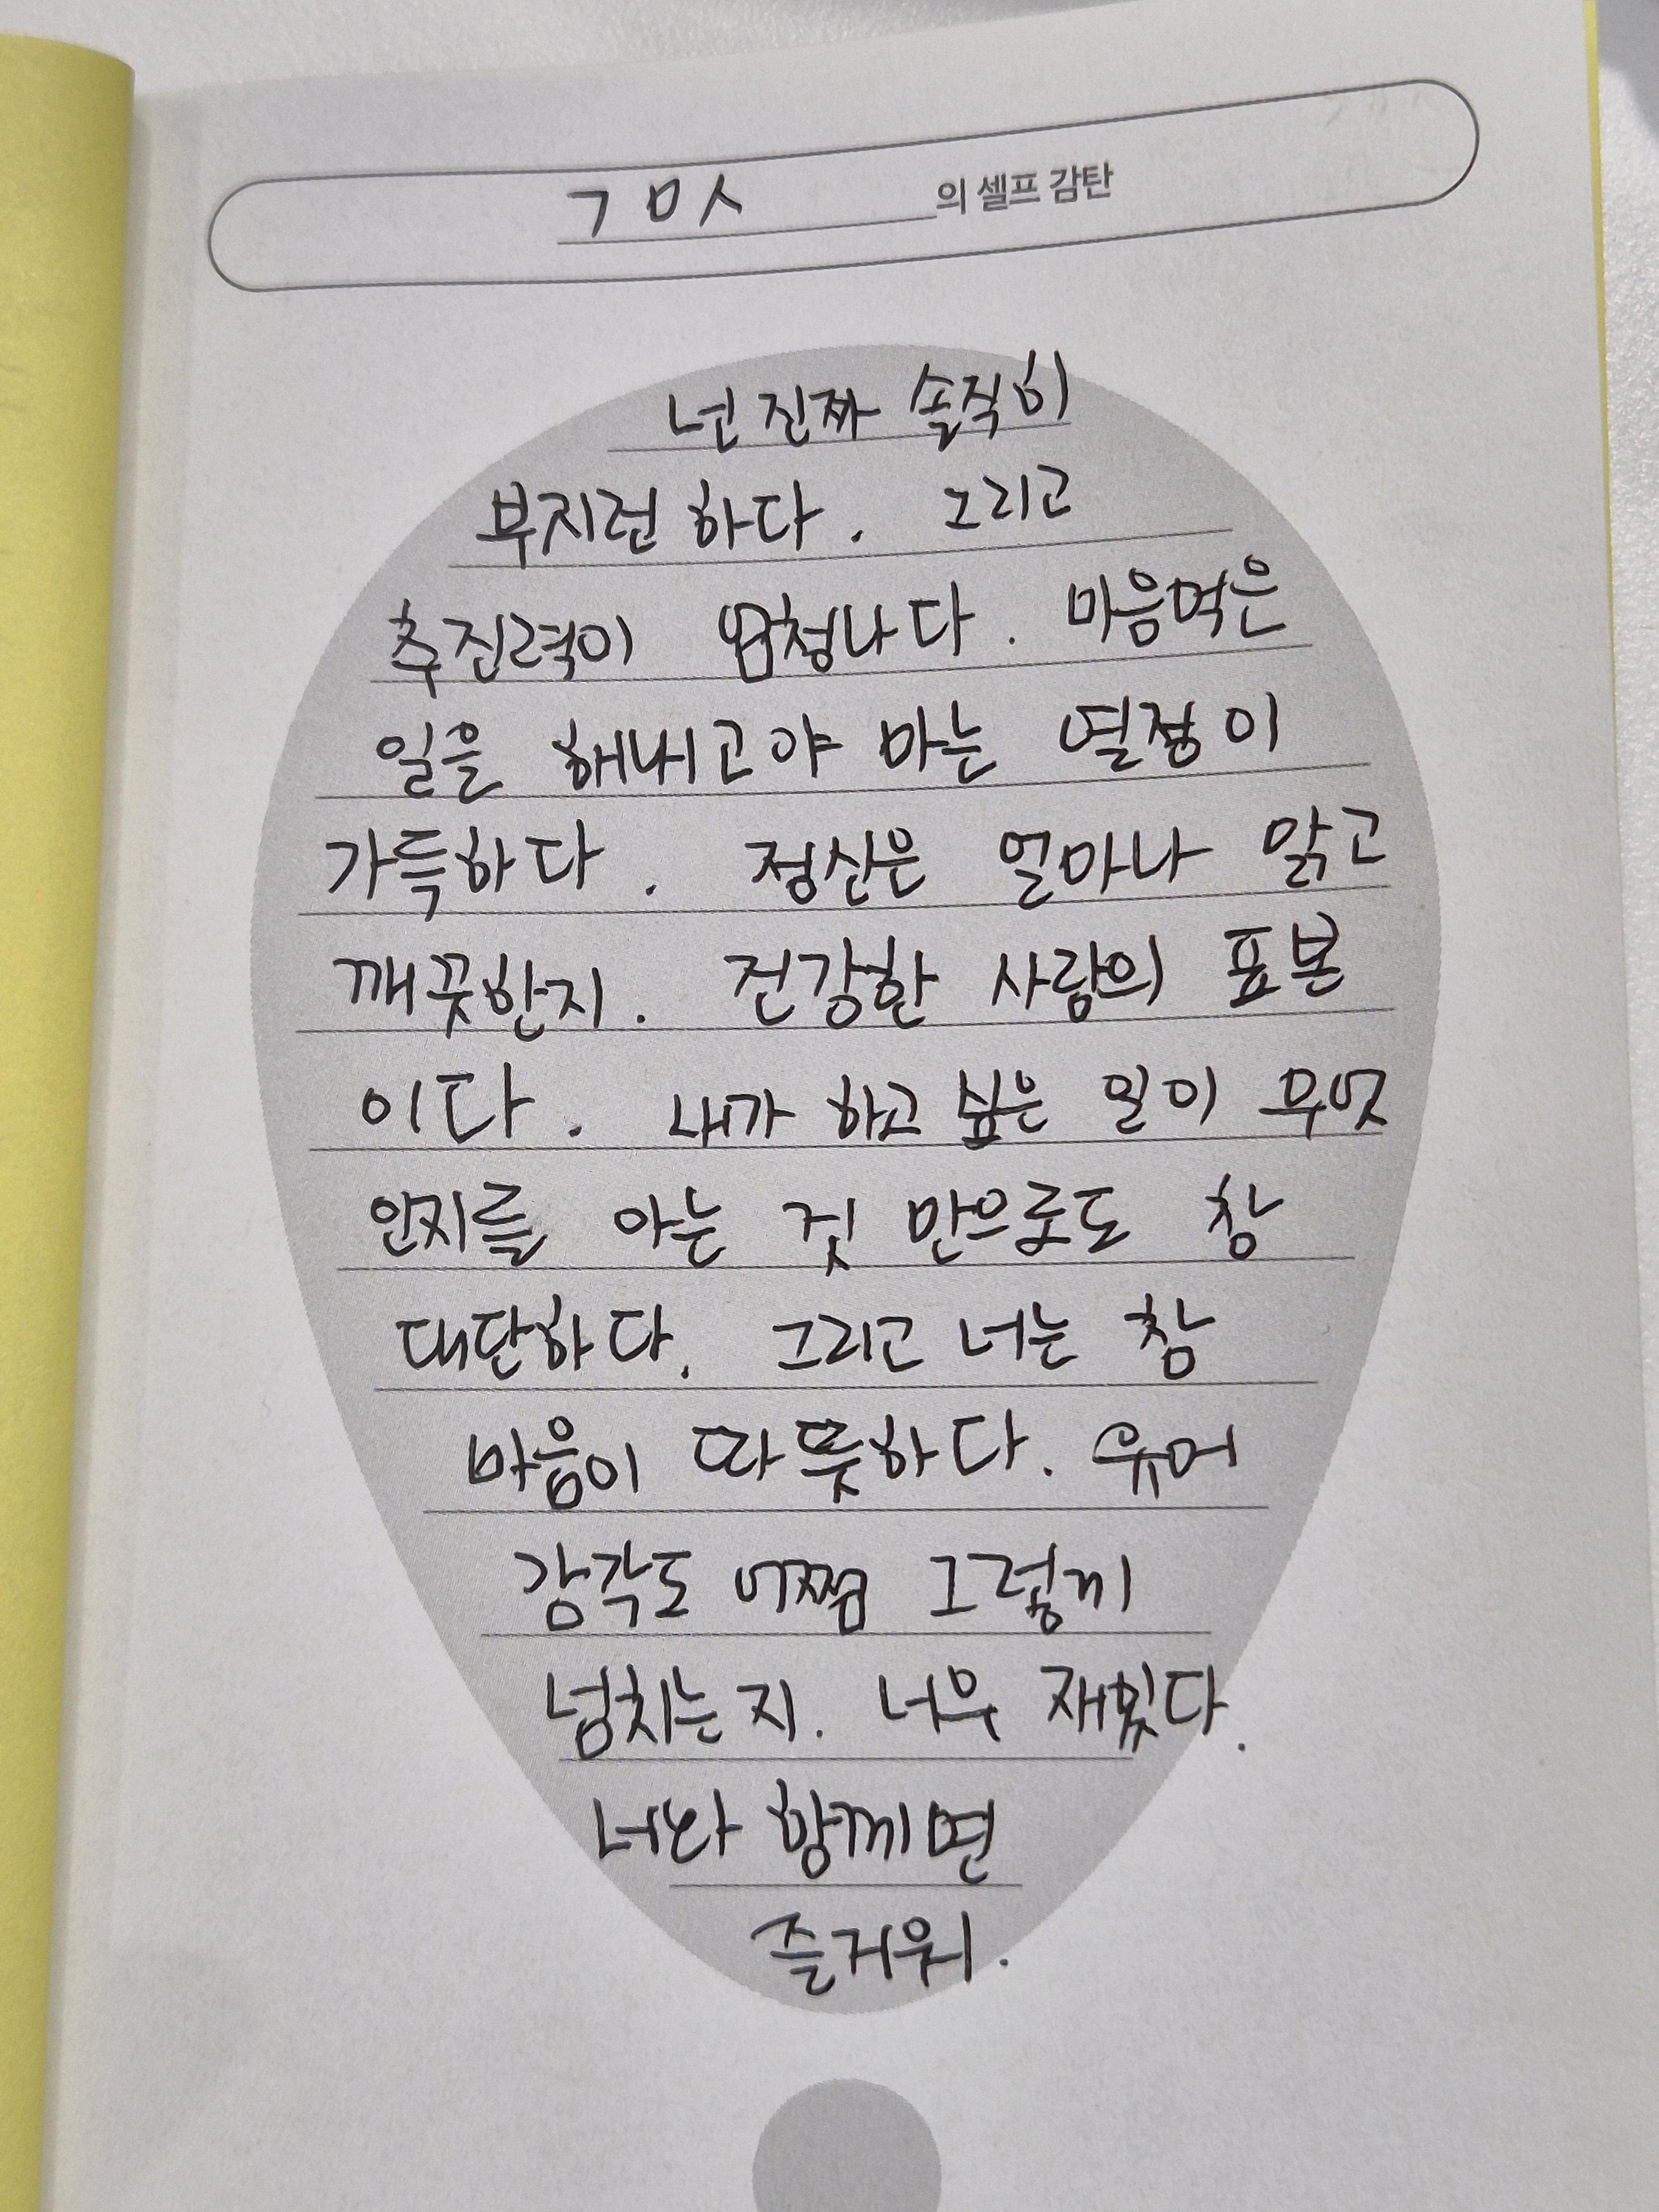 ㄱㅁㅅ의 셀프 감탄
넌 진짜 솔직히
부지런 하다. 그리고
추진력이 엄청나다. 마음먹은
일을 해내고야 마는 열정이
가득하다. 정신은 얼마나 맑고
깨끗한지. 건강한 사람의 표본
이다. 내가 하고 싶은 일이 무엇
인지를 아는 것 만으로도 참
대단하다. 그리고 너는 참
마음이 따뜻하다. 유머
감각도 어쩜 그렇게
넘치는 지. 너무 재밌다.
너와 함께면
즐거워.